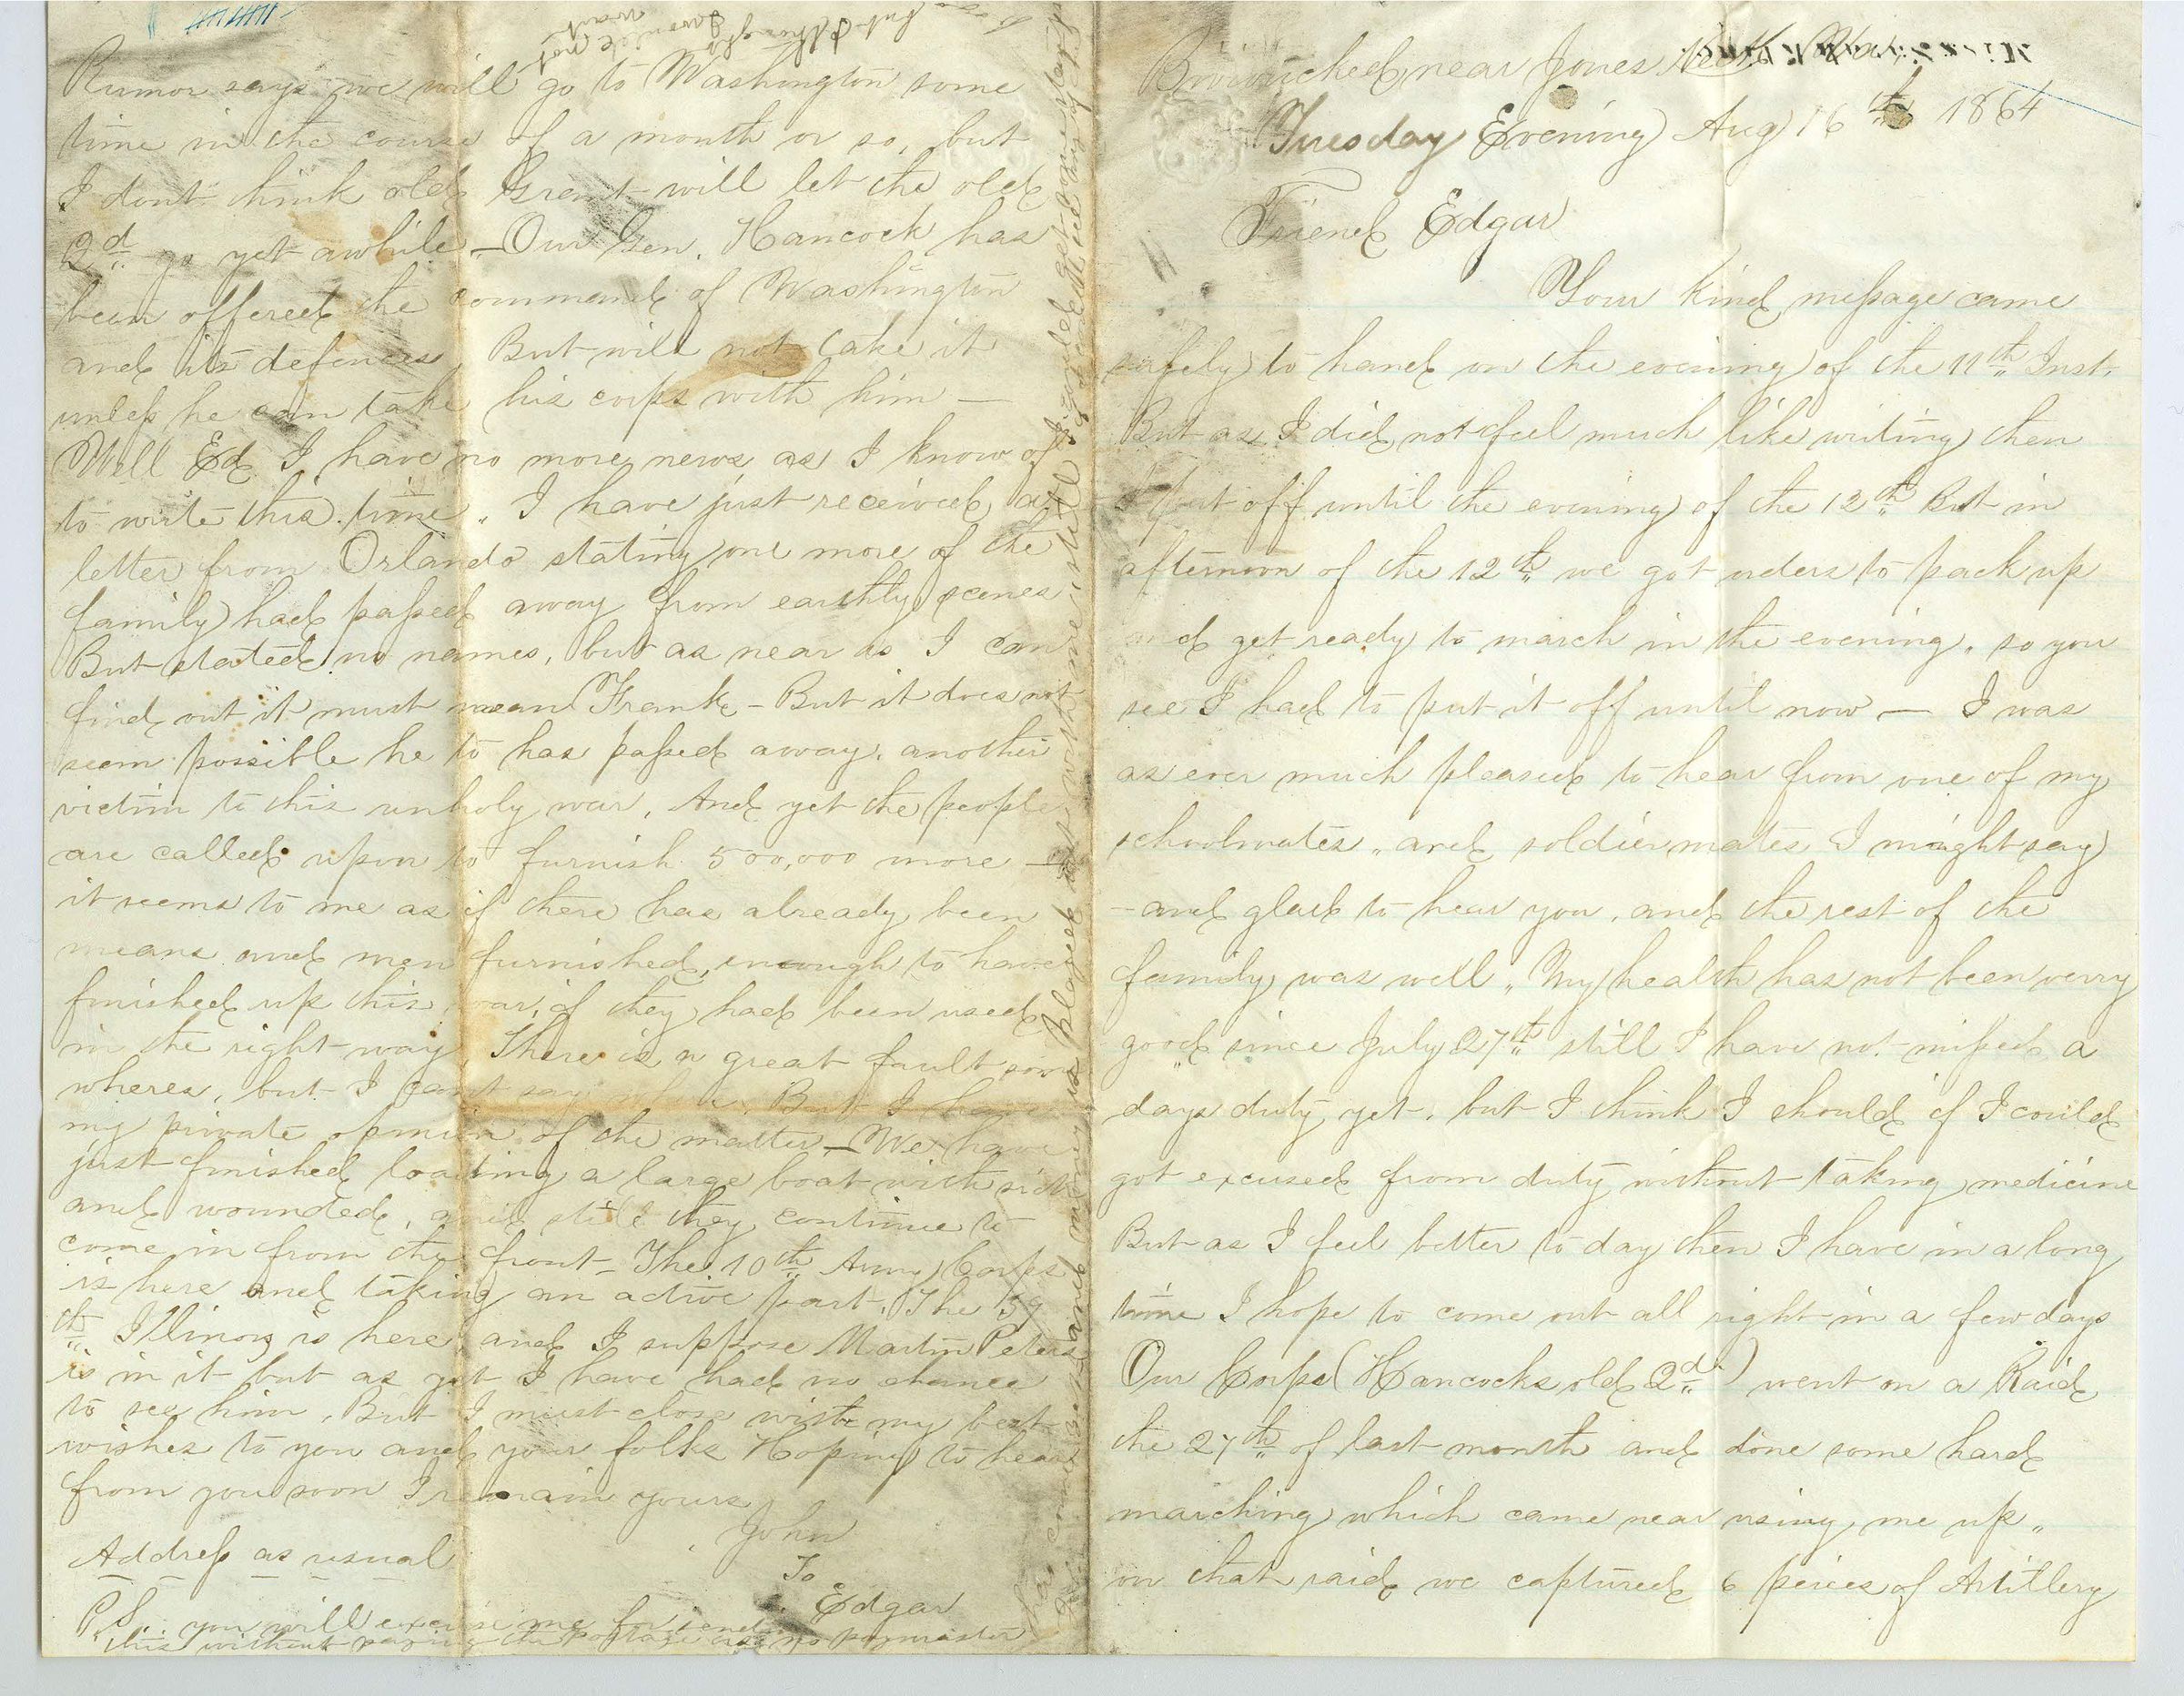 Bivouacked near Jones Neck
Tuesday Evening Aug 16th 1864
Friend Edgar
Your kind message came
safely to hand on the evening of the 11th Inst.
But as I did not feel much like writing then
I put off until the evening of the 12th But in
afternoon of the 12th we got orders to pack up
and get ready to march in the evening, so you
see I had to put it off until now — I was
as ever much pleased to hear from one of my
schoolmates, and soldiermates I might say
- and glad to hear you, and the rest of the
family was well, My health has not been verry
good since July 27th still I have not missed a
days duty yet, but I think I should if I could
got excused from duty without taking medicine
But as I feel better to day then I have in a long
time I hope to come out all right in a few days
Our Corps (Hancocks old 2d) went on a Raid
the 27th of last month and done some hard
marching which came near using me up,
on that raid we captured 6 peices of Artillery
Rumor says we will go to Washington some
time in the course of a month or so, but
I dont think old Grant will let the old
2d go yet awhile — Our Gen. Hancock has
been offered the command of Washington
and its defences, But will not take it
unless he can take his corps with him —
Well Ed I have no more news as I know of
to write this time, I have just received a
letter from Orlando stating one more of the
family had passed away from earthly scenes
But stated no names, but as near as I can
find out it must mean Frank - But it does not
seem possible he to has passed away, another
victim to this unholy war, And yet the people
are called upon to furnish 500,000 more —
it seems to me as if there has already been
means and men furnished, enough to have
finished up this war, if they had been used
in the right way, There is a great fault some
wheres, but I cant say where, But I have
my private opinion of the matter — We have
just finished loading a large boat with sick
and wounded, and still they continue to
come in from the front - The 10th Army Corps
is here and taking an active part, The 39
th Illinois is here, and I suppose Martin Peters
is in it but as yet I have had no chance
to see him, But I must close with my best
wishes to you and your folks Hoping to hear
from you soon I remain yours
John
To
Edgar
Address as usual
P.S. you will excuse me for sending
this without paying the postage as no paymaster
has come and money is played out with me until
but I thought I would not
wait